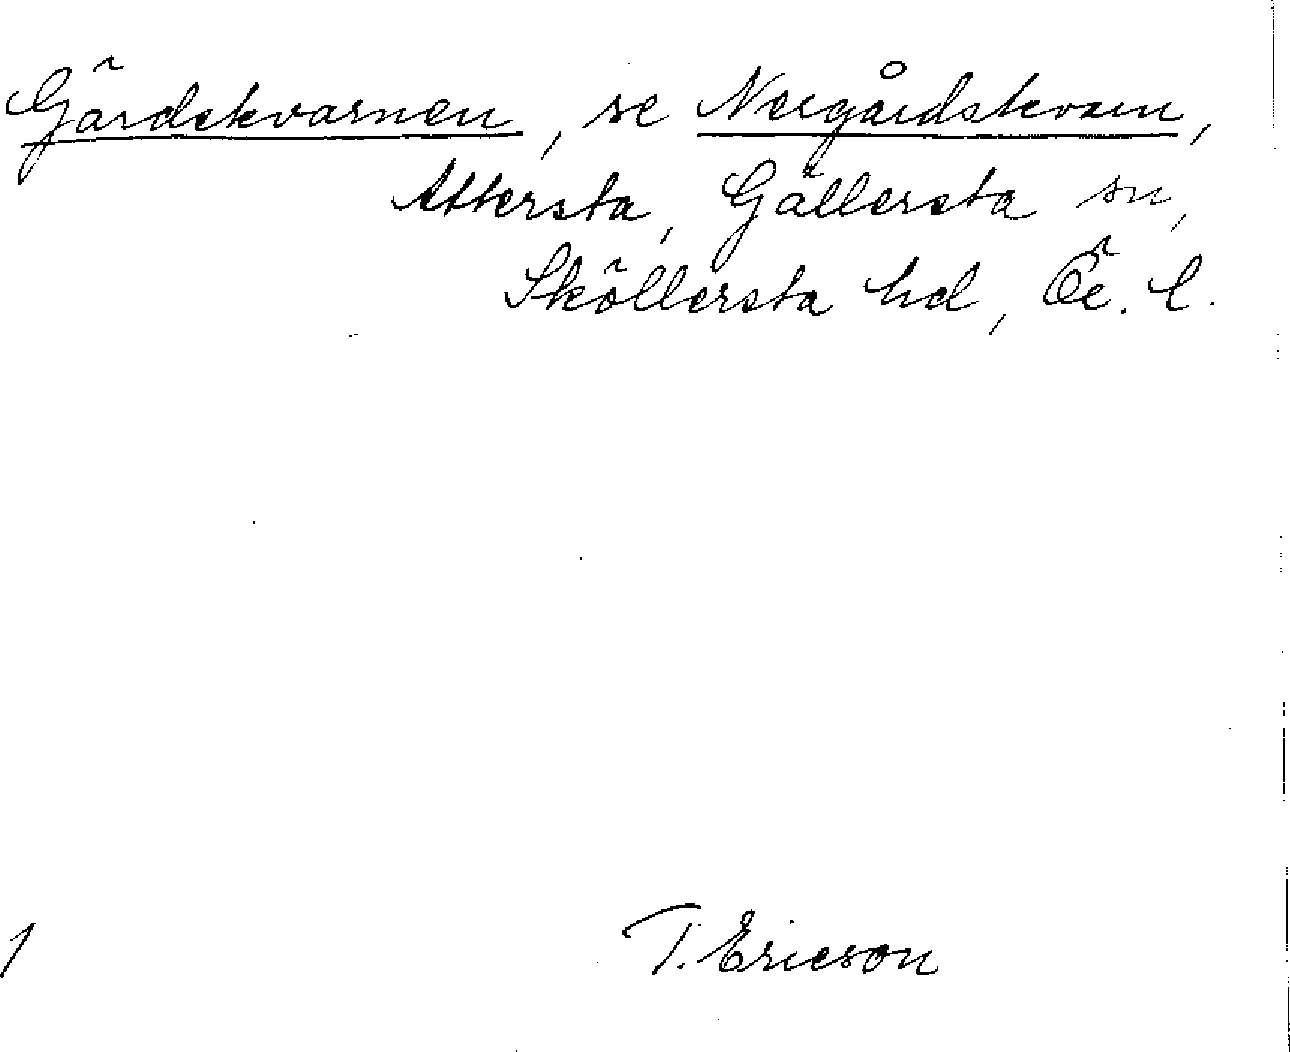 Gärdskvarnen, se Nergårdskvarn,
Attersta, Gällersta sn,
Sköllersta hd, Ög. l.
1
T. Ericson